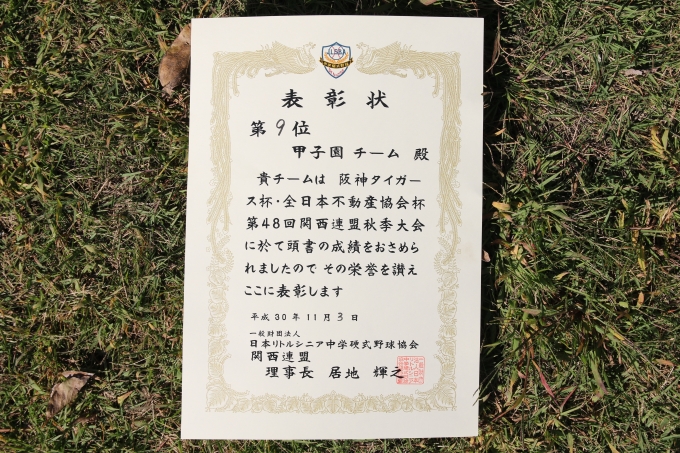 表彰状
第9位
甲子園チーム 殿
貴チームは 阪神タイガー
ス杯・全日本不動産協会杯
第48回関西連盟秋季大会
に於て頭書の成績をおさめら
れましたので その栄誉を讃え
ここに表彰します
平成30年11月3日
一般財団法人
日本リトルシニア中学硬式野球協会
関西連盟
理事長 居地 輝之